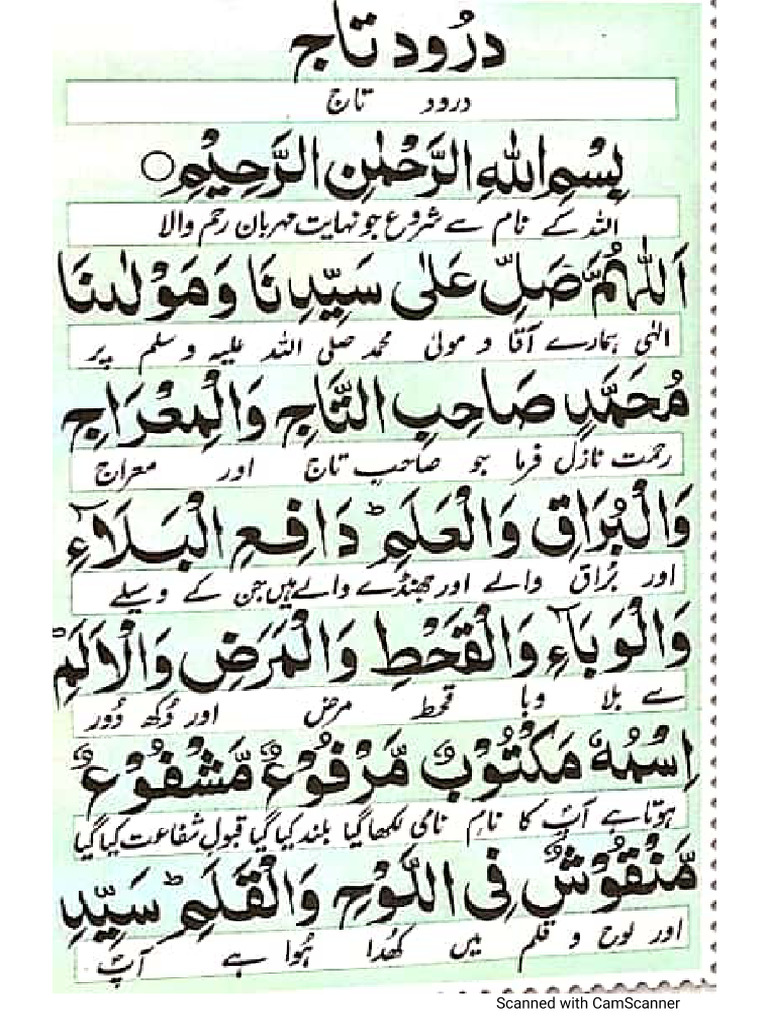 درُود تاج
درود تاج
بِسْمِ اللهِ الرَّحْمٰنِ الرَّحِيْمِ
اللہ کے نام سے شروع جو نہایت مہربان رحم والا
اَللّٰهُمَّ صَلِّ عَلٰى سَيِّدِنَا وَمَوْلٰىنَا
الٰہی ہمارے آقا و مولیٰ محمد صلی اللہ علیہ وسلم پر
مُحَمَّدٍ صَاحِبِ التَّاجِ وَالْمِعْرَاجِ
رحمت نازل فرما جو صاحبِ تاج اور معراج
وَالْبُرَاقِ وَالْعَلَمِ ط دَافِعِ الْبَلَآءِ
اور بُراق والے اور جھنڈے والے ہیں جن کے وسیلے
وَالْوَبَآءِ وَالْقَحْطِ وَالْمَرَضِ وَالْاَلَمِ ط
سے بلا وبا قحط مرض اور دُکھ دُور
اِسْمُهٗ مَكْتُوْبٌ مَّرْفُوْعٌ مَّشْفُوْعٌ
ہوتا ہے آپؐ کا نامِ نامی لکھا گیا بلند کیا گیا قبول شفاعت کیا گیا
مَّنْقُوْشٌ فِى اللَّوْحِ وَالْقَلَمِ ط سَيِّدِ
اور لوح و قلم میں کھُدا ہُوا ہے آپؐ
Scanned with CamScanner